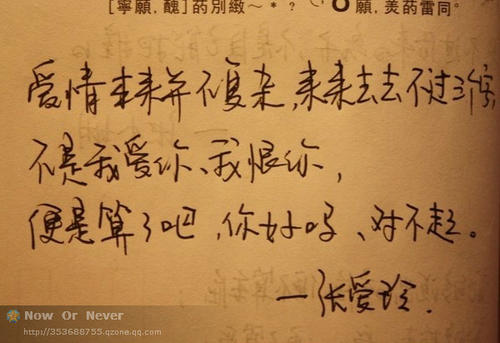 [寧願,醜]菂別緻~*?
願,羙菂雷同。
爱情本来并不复杂,来来去去不过三字
不是我爱你、我恨你,
便是算了吧,你好吗、对不起。
—张爱玲.
Now Or Never
http://353688755.qzone.qq.com